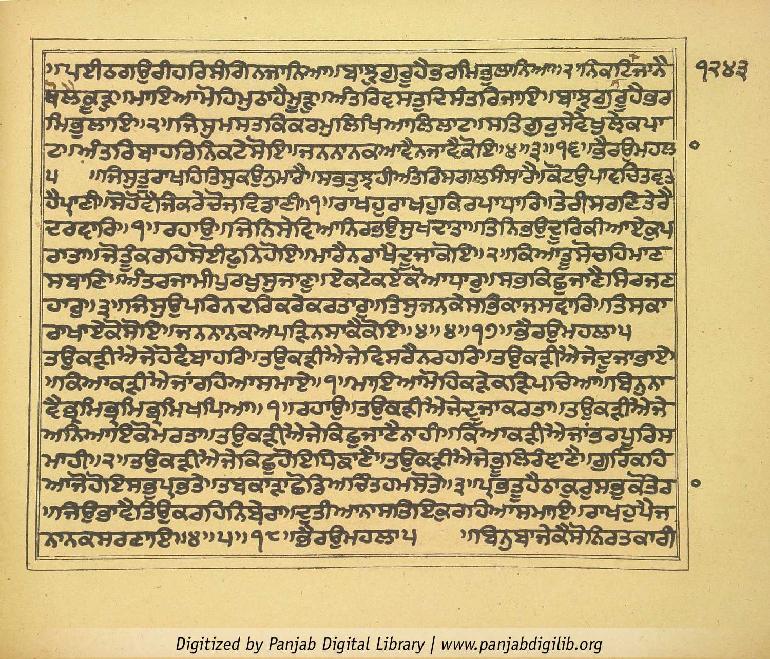 ॥ਪਈਠਗਉਰੀਹਰਿਸੰਗਿਨਜਾਨਿਆ॥ਬਾਝੁਗੁਰੂਹੈਭਰਮਿਭੁਲਾਨਿਆ॥੨॥ਨਿਕਟਿਜਾਨੈ
ਬੋਲੈਕੂੜੁ॥ਮਾਇਆਮੋਹਿਮੁਠਾਹੈਮੂੜੁ॥ਅੰਤਰਿਵਸਤੁਦਿਸੰਤਰਿਜਾਇ॥ਬਾਝੁਗੁਰੂਹੈਭਰ
ਮਿਭੁਲਾਇ॥੨॥ਜਿਸੁਮਸਤਕਿਕਰਮੁਲਿਖਿਆਲਿਲਾਟ॥ਸਤਿਗੁਰੁਸੇਵੇਖੁਲੇਕਪਾ
ਟ॥ਅੰਤਰਿਬਾਹਰਿਨਿਕਟੇਸੋਇ॥ਜਨਨਾਨਕਆਵੈਨਜਾਵੈਕੋਇ॥੪॥੩॥੧੬॥ਭੈਰਉਮਹਲਾ
੫ ॥ਜਿਸੁਤੂਰਾਖਹਿਤਿਸੁਕਉਨੁਮਾਰੈ॥ਸਭਤੁਝਹੀਅੰਤਰਿਸਗਲਸੰਸਾਰੈ॥ਕੋਟਉਪਾਵਚਿਤਵਤ
ਹੈਪ੍ਰਾਣੀ॥ਸੋਹੋਵੈਜਿਕਰੈਚੋਜਵਿਡਾਣੀ॥੧॥ਰਾਖਹੁਰਾਖਹੁਕਿਰਪਾਧਾਰਿ॥ਤੇਰੀਸਰਣਿਤੇਰੈ
ਦਰਵਾਰਿ॥੧॥ਰਹਾਉ॥ਜਿਨਿਸੇਵਿਆਨਿਰਭਉਸੁਖਦਾਤਾ॥ਤਿਨਿਭਉਦੂਰਿਕੀਆਏਕੁਪ
ਰਾਤਾ॥ਜੋਤੂੰਕਰਹਿਸੋਈਫੁਨਿਹੋਇ॥ਮਾਰੈਨਰਾਖੈਦੂਜਾਕੋਇ॥੨॥ਕਿਆਤੂਸੋਚਹਿਮਾਣ
ਸਬਾਣਿ॥ਅੰਤਰਜਾਮੀਪੁਰਖੁਸੁਜਾਣੁ॥ਏਕਟੇਕਏਕੋਆਧਾਰੁ॥ਸਭਕਿਛੁਜਾਣੈਸਿਰਜਣ
ਹਾਰੁ॥੩॥ਜਿਸੁਉਪਰਿਨਦਰਿਕਰੇਕਰਤਾਰੁ॥ਤਿਸੁਜਨਕੇਸਭਿਕਾਜਸਵਾਰਿ॥ਤਿਸਕਾ
ਰਾਖਾਏਕੋਸੋਇ॥ਜਨਨਾਨਕਅਪੜਿਨਸਾਕੈਕੋਇ॥੪॥੪॥੧੭॥ਭੈਰਉਮਹਲਾ੫
ਤਉਕੜੀਐਜੇਹੋਵੈਬਾਹਰਿ॥ਤਉਕੜੀਐਜੇਵਿਸਰੈਨਰਹਰਿ॥ਤਉਕੜੀਐਜੇਦੂਜਾਭਾਏ
॥ਕਿਆਕੜੀਐਜਾਂਰਹਿਆਸਮਾਏ॥੧॥ਮਾਇਆਮੋਹਿਕੜੇਕੜਿਪਚਿਆ॥ਬਿਨੁਨਾ
ਵੈਭ੍ਰਮਿਭ੍ਰਮਿਭ੍ਰਮਿਖਪਿਆ॥੧॥ਰਹਾਉ॥ਤਉਕੜੀਐਜੇਦੂਜਾਕਰਤਾ॥ਤਉਕੜੀਐਜੇ
ਅਨਿਆਇਕੋਮਰਤਾ॥ਤਉਕੜੀਐਜੇਕਿਛੁਜਾਣੈਨਾਹੀ॥ਕਿਆਕੜੀਐਜਾਂਭਰਪੂਰਿਸ
ਮਾਹੀ॥੨॥ਤਉਕੜੀਐਜੇਕਿਛੁਹੋਇਧਿਙਾਣੈ॥ਤਉਕੜੀਐਜੇਭੂਲਿਰੰਞਾਣੈ॥ਗੁਰਿਕਹਿ
ਆਜੋਹੋਇਸਭੁਪ੍ਰਭਤੇ॥ਤਬਕਾੜਾਛੋਡਿਅਚਿੰਤਹਮਸੋਤੇ॥੩॥ਪ੍ਰਭਤੂਹੈਠਾਕੁਰੁਸਭੁਕੋਤੇਰਾ
॥ਜਿਉਭਾਵੈਤਿਉਕਰਹਿਨਿਬੇਰਾ॥ਦੁਤੀਆਨਾਸਤਿਇਕੁਰਹਿਆਸਮਾਇ॥ਰਾਖਹੁਪੈਜ
ਨਾਨਕਸਰਣਾਇ॥੪॥੫॥੧੮॥ਭੈਰਉਮਹਲਾ੫ ॥ਬਿਨੁਬਾਜੇਕੈਸੋਨਿਰਤਕਾਰੀ
੧੨੪੩
Digitized by Panjab Digital Library | www.panjabdigilib.org